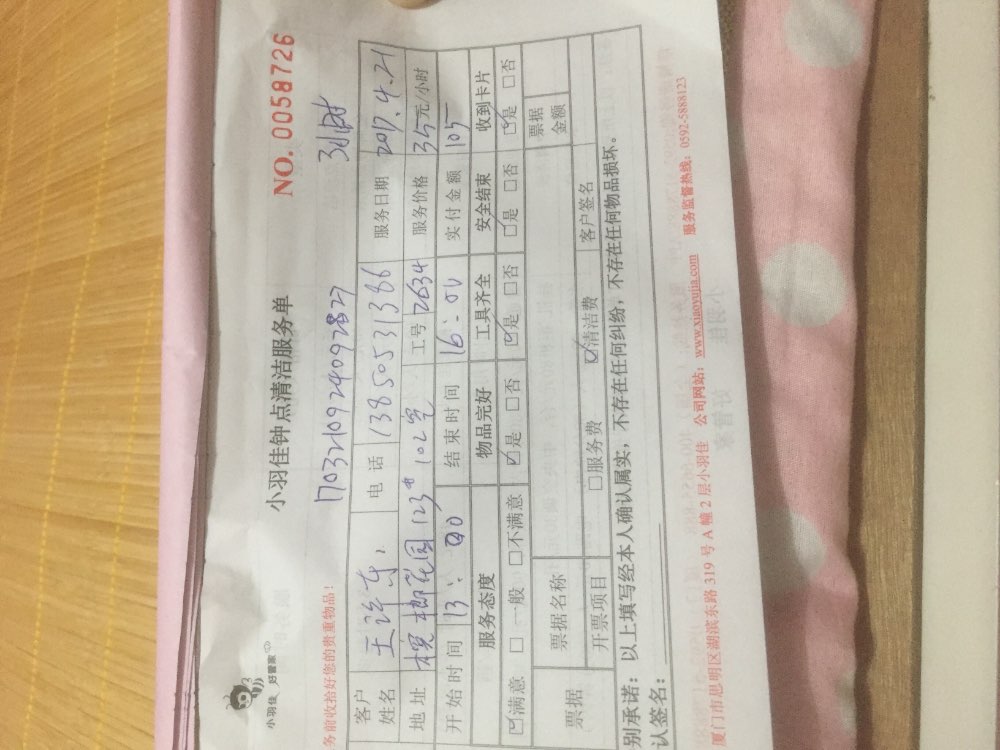 小羽佳 好管家
小羽佳钟点清洁服务单
NO. 0058726
务前收拾好您的贵重物品!
1703210924092827
3小时
客户姓名 王 电话 13850531386 服务日期 2017.4.21
地址 槟榔花园123# 102室 工号 2634 服务价格 35元/小时
开始时间 13:00 结束时间 16:01 实付金额 105
服务态度 物品完好 工具齐全 安全结束 收到卡片
☑满意 □一般 □不满意 ☑是 □否 ☑是 □否 ☑是 □否 ☑是 □否
票据 票据名称 票据金额
开票项目 □服务费 ☑清洁费 客户签名
别承诺:以上填写经本人确认属实,不存在任何纠纷,不存在任何物品损坏。
认签名:
厦门市思明区湖滨东路 319 号 A 幢 2 层小羽佳 公司网站:www.xiaoyujia.com 服务监督热线:0592-5888123